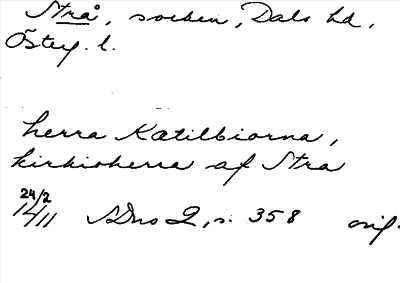 Strå, socken, Dals hd,
Österg. l.
herra Katilbiorna,
kirkioherra af Stra
24/2
1411 SDns 2, s. 358 orig.